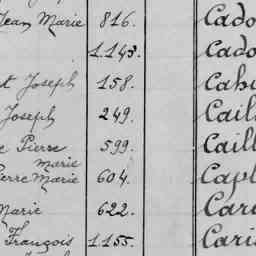 Jean Marie 816. Cado
1.143. Cado
t Joseph 158. Cah
Joseph 249. Cail
e Pierre 599. Caill
marie
Pierre Marie 604. Capl
Marie 622. Car
François 1.155. Cari